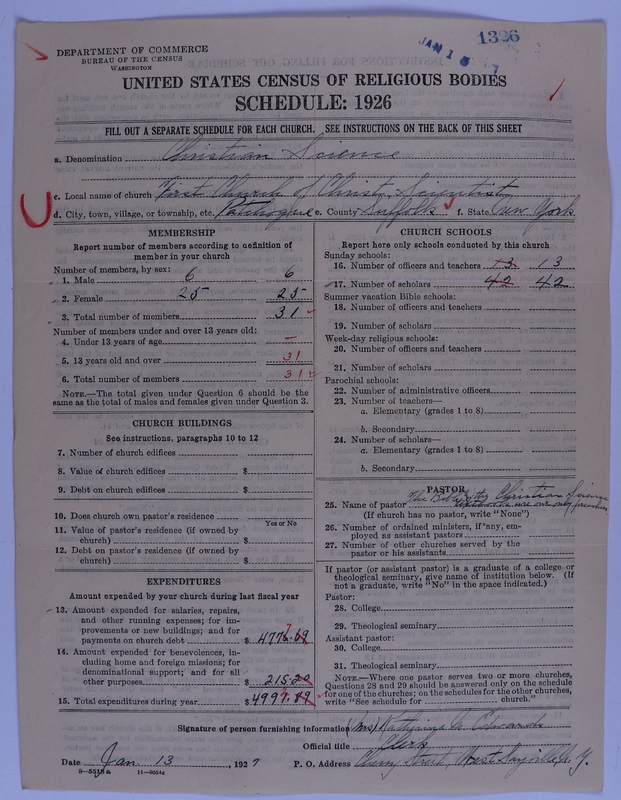 1326
JAN 1
DEPARTMENT OF COMMERCE
BUREAU OF THE CENSUS
WASHINGTON
UNITED STATES CENSUS OF RELIGIOUS BODIES
SCHEDULE: 1926
FILL OUT A SEPARATE SCHEDULE FOR EACH CHURCH. SEE INSTRUCTIONS ON THE BACK OF THIS SHEET
a. Denomination Christian Science
c. Local name of church First Church of Christ, Scientist
d. City, town, village, or township, etc. Patchogue e. County Suffolk f. State New York
MEMBERSHIP
Report number of members according to definition of
member in your church
Number of members, by sex:
1. Male 6 6
2. Female 25 25
3. Total number of members 31
Number of members under and over 13 years old:
4. Under 13 years of age —
5. 13 years old and over 31
6. Total number of members 31
NOTE.—The total given under Question 6 should be
same as the total of males and females given under Question 3.
CHURCH BUILDINGS
See instructions, paragraphs 10 to 12
7. Number of church edifices
8. Value of church edifices $
9. Debt on church edifices $
10. Does church own pastor's residence
Yes or No
11. Value of pastor's residence (if owned by
church) $
12. Debt on pastor's residence (if owned by
church) $
EXPENDITURES
Amount expended by your church during last fiscal year
13. Amount expended for salaries, repairs,
and other running expenses; for im-
provements or new buildings; and for
payments on church debt $ 4776.69
14. Amount expended for benevolences, in-
cluding home and foreign missions; for
denominational support; and for all
other purposes $ 215.20
15. Total expenditures during year $ 4997.89
CHURCH SCHOOLS
Report here only schools conducted by this church
Sunday schools:
16. Number of officers and teachers 13 13
17. Number of scholars 42 42
Summer vacation Bible schools:
18. Number of officers and teachers
19. Number of scholars
Week-day religious schools:
20. Number of officers and teachers
21. Number of scholars
Parochial schools:
22. Number of administrative officers
23. Number of teachers—
a. Elementary (grades 1 to 8)
b. Secondary
24. Number of scholars—
a. Elementary (grades 1 to 8)
b. Secondary
PASTOR
25. Name of pastor The Bible Christian Science are our only
(If church has no pastor, write "None")
26. Number of ordained ministers, if any, em-
ployed as assistant pastors
27. Number of other churches served by the
pastor or his assistants
If pastor (or assistant pastor) is a graduate of a college or
theological seminary, give name of institution below. (If
not a graduate, write "No" in the space indicated.)
Pastor:
28. College
29. Theological seminary
Assistant pastor:
30. College
31. Theological seminary
NOTE.—Where one pastor serves two or more churches,
Questions 28 and 29 should be answered only on the schedule
for one of the churches; on the schedules for the other churches,
write "See schedule for church."
Signature of person furnishing information (Mrs) Katharine Edwards
Official title Clerk
Date Jan 13, 1927 P. O. Address Cherry Street, West Sayville, N. Y.
8—5318a 11—9054z